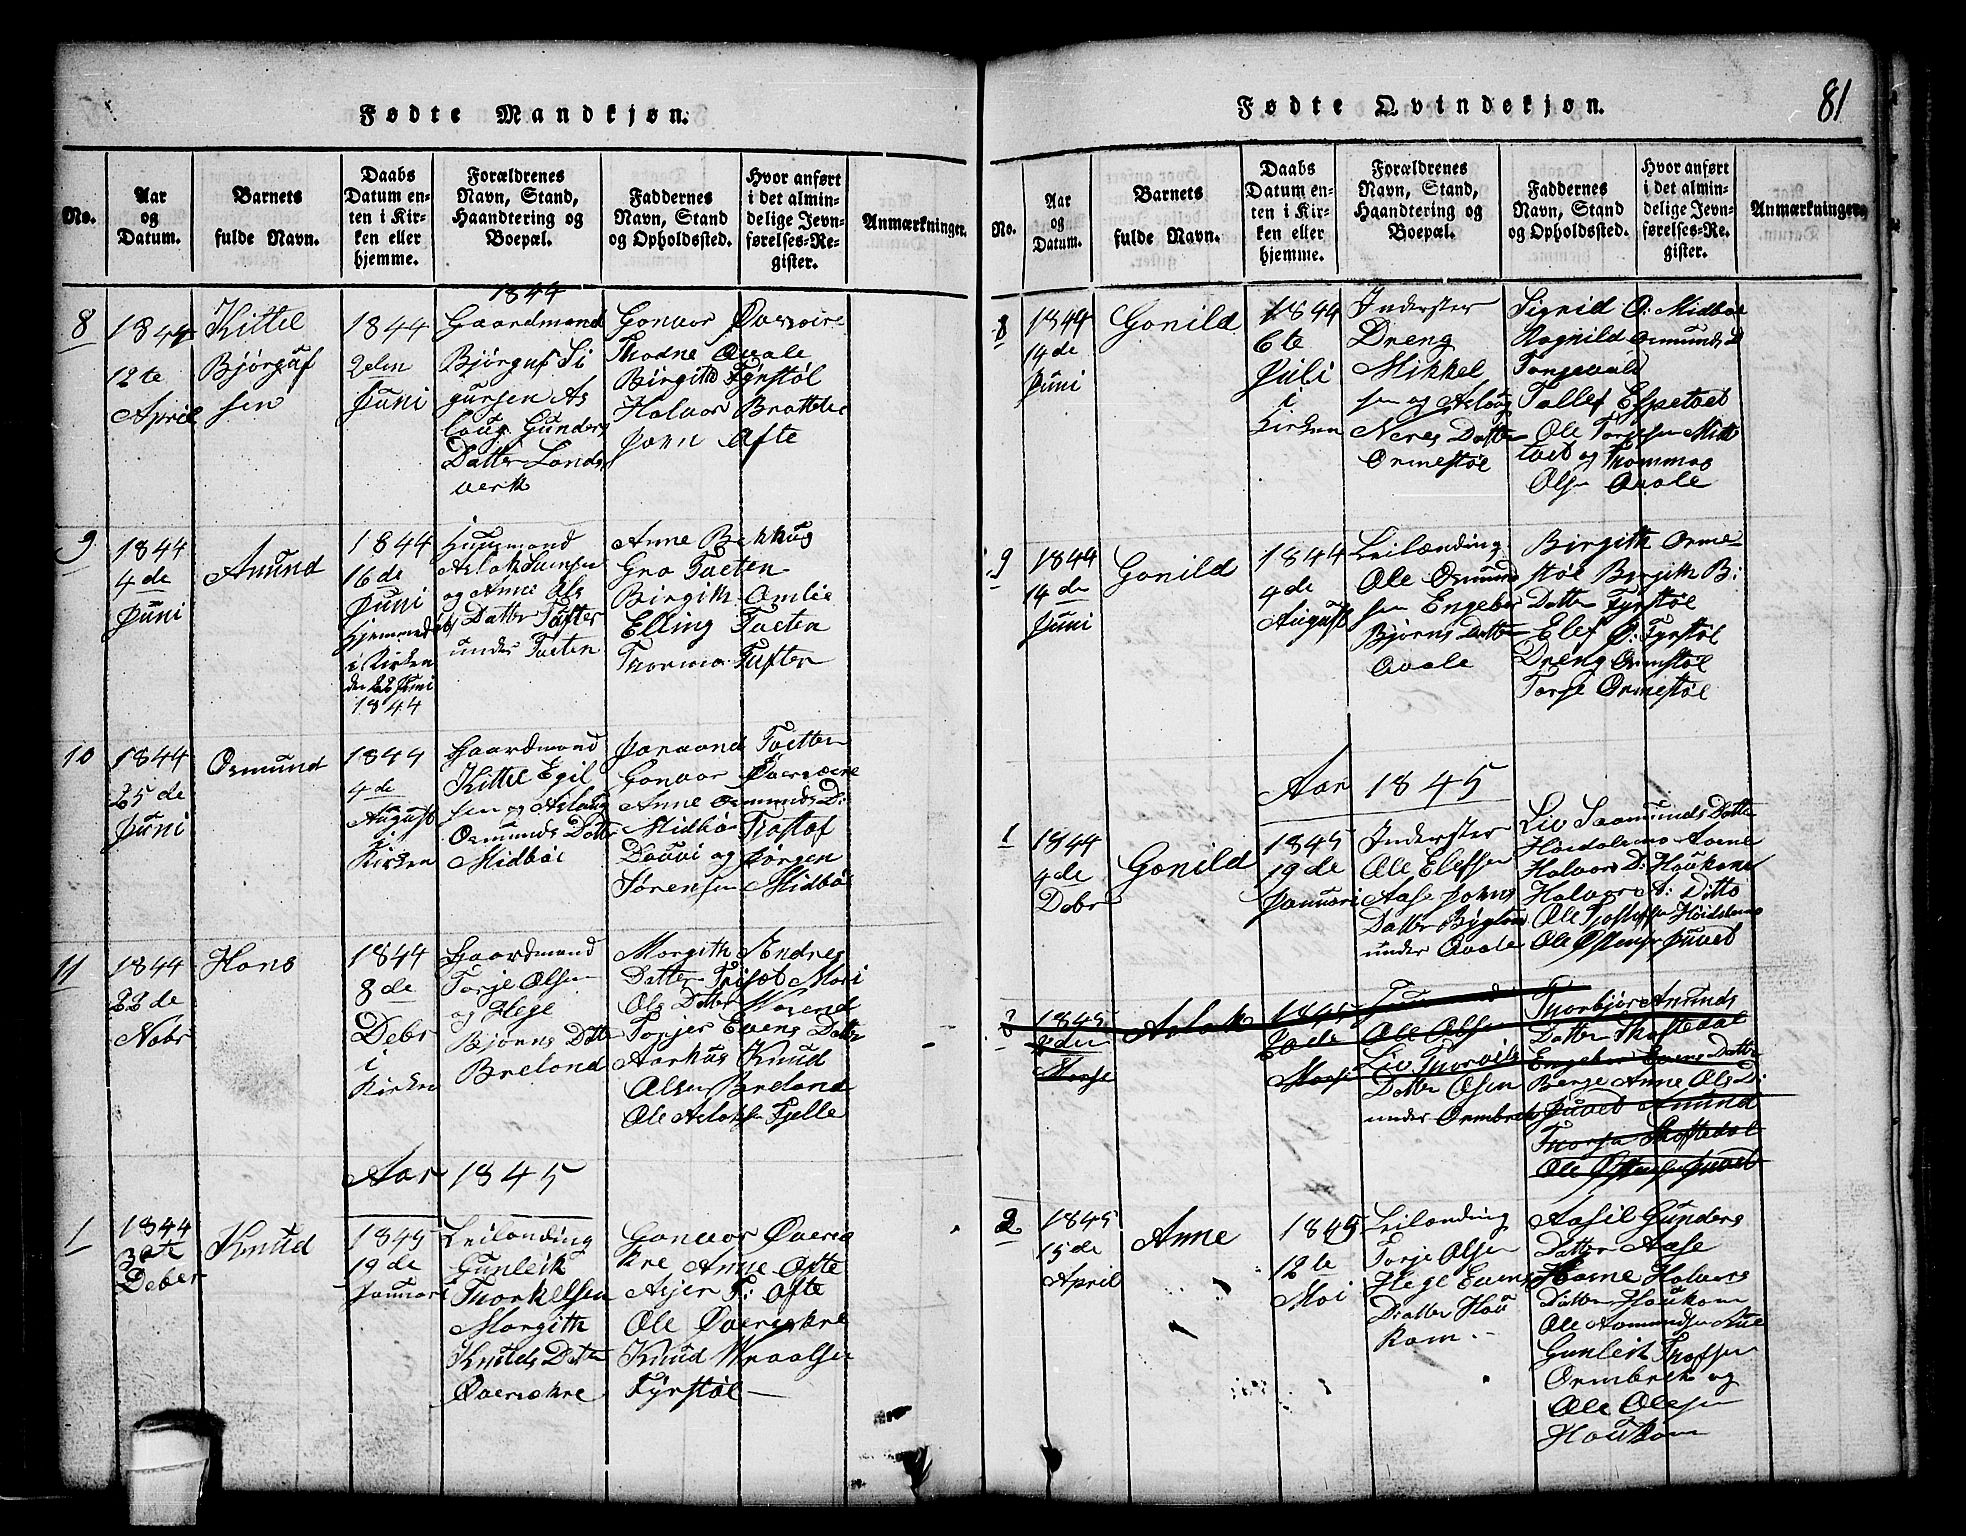 81
Fødte Mandkjøn.
No.
Aar
og
Datum.
Barnets
fulde Navn.
Daabs
Datum en-
ten i Kir-
ken eller
hjemme.
Forældrenes
Navn, Stand,
Haandtering og
Boepæl.
Faddernes
Navn, Stand
og Opholdssted.
Hvor anført
i det almin-
delige Jevn-
førelses-Re-
gister.
Anmærkninger.
1844
8
1844
12te
April
Kittel
Bjørguf
sen
1844
2den
Juni
Gaardmand
Bjørguf Si
gursen As
laug Gunders
Datter Lands
verk
Gonvor Øversøire
Thodne Qvale
Birgith Fyrstøl
Halvor Bratteli
John Ofte
9
1844
4de
Juni
Amund
1844
16de
Juni
hjemmedøbt
i Kirken
den 22 Juni
1844
Huusmand
Aslak
og Anne Ols
Datter Tufter
under Tveten
Anne Bekhus
Gro Tveten
Birgith Omlie
Elling Tveten
Thormo Tuften
10
1844
25de
Juni
Osmund
1844
4de
August
i
Kirken
Gaardmand
Kittel Egil
sen og Aslaug
Osmunds Datter
Midbøi
Joraand Tvetten
Gonvor Øversøire
Anne Osmunds D:
Midbøi Trostof
Dauvi og Jørgen
Sørensen Midbøi
11
1844
22de
Nobr
Hans
1844
8de
Debr
i
Kirken
Gaardmand
Torje Olsen
og Hege
Bjørns Datter
Breland
Morgith Endres
Datter Trisæt Mari
Ols Datter
Torjer Evens Datter
Aarhus Knud
Olsen Breland
Ole Aslaksen Fjelle
Aar 1845
1
1844
30te
Deber
Knud
1845
19de
Januari
Leilænding
Gunleik
Thorkelsen
Morgith
Knuds Datter
Øversøkre
Gonvor Øversø
kre Anne Ofte
Asjer T: Ofte
Ole Øversøkre
Knud Wraalsen
Fyrstøl
Fødte Qvindekjøn.
No.
Aar
og
Datum.
Barnets
fulde Navn.
Daabs
Datum en-
ten i Kir-
ken eller
hjemme.
Forældrenes
Navn, Stand,
Haandtering og
Boepæl.
Faddernes
Navn, Stand
og Opholdssted.
Hvor anført
i det almin-
delige Jevn-
førelses-Re-
gister.
Anmærkninger
8
1844
14de
Juni
Gonild
1844
6te
Juli
i
Kirken
Inderster
Dreng
Mikkel
sen og Aslaug
Neres Datter
Ormestøl
Signild O: Midbøe
Ragnild Osmunds D
Torgevald
Tallef Espetvet
Ole Torjesen Midt
tvet og Thommas
Olsen Qvale
9
1844
14de
Juni
Gonild
1844
4de
August
Leilænding
Ole Osmund
sen Engebor
Bjørns Datter
Qvale
Birgith Orme-
støl Birgith B:
Datter Fyrstøl
Elef O: Fyrstøl
Dreng Ormstøl
Torje Ormestøl
Aar 1845
1
1844
4de
Debr
Gonild
1845
19de
Januari
Inderster
Ole Elefsen
Aase Johns
Datter Bygland
under Qvale
Liv Saamunds Datter
Høidalsmo Aasne
Halvors D: Haukom
Halvor A: Ditto
Ole Tjostofsen Høidalsmo
Ole Østensen Juvet
2
1845
2den
Marse
Aslak
1845
20de
Marse
Ole Olsen
Liv Thorvils
Datter Olsen
under Ormbrek
Thorbjør Amunds
Datter Skoftedal
Engebor Evens Datter
Berge Anne Ols D:
Juvet Amund
Thorsa Skoftedal
Ole Østensen Juvet
2
1845
15de
April
Anne
1845
12te
Mai
Leilænding
Torje Olsen
Hege Evens
Datter Hau
kom
Aasil Gunders
Datter Aase
Halvors
Datter Haukom
Ole Aamundsen
Gunleik
Ormbrek og
Ole Olesen
Haukom